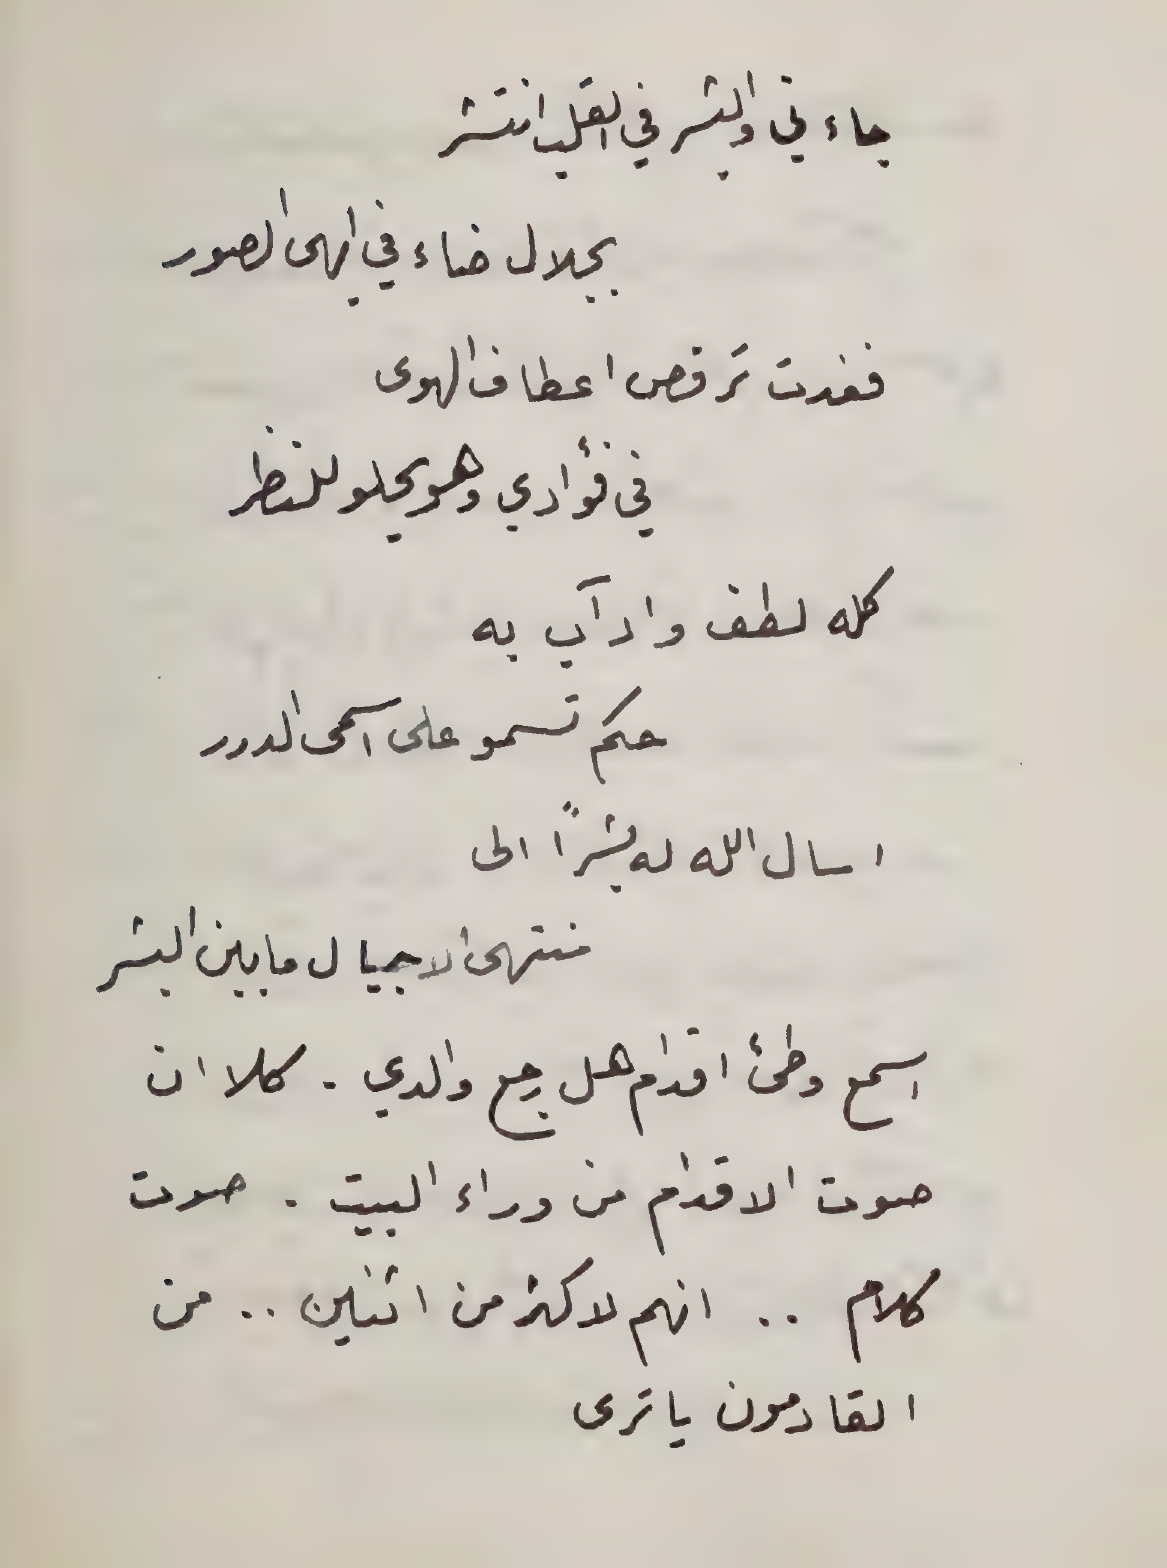 جاءني والبشر في القلب انتشر
بجلال ضاء في ابهى الصور
فغدت ترقص اعطاف الهوى
في فؤادي وهو يحلو للنظر
كله لطف وادآب به
حكم تسمو على اسمى الدرر
اسال الله له بشراً الى
منتهى الاجيال ما بين البشر
اسمع وطئ اقدام هل رجع والدي . كلا ان
صوت الاقدام من وراء البيت . صوت
كلام .. انهم لاكثر من اثنين .. من
القادمون يا ترى